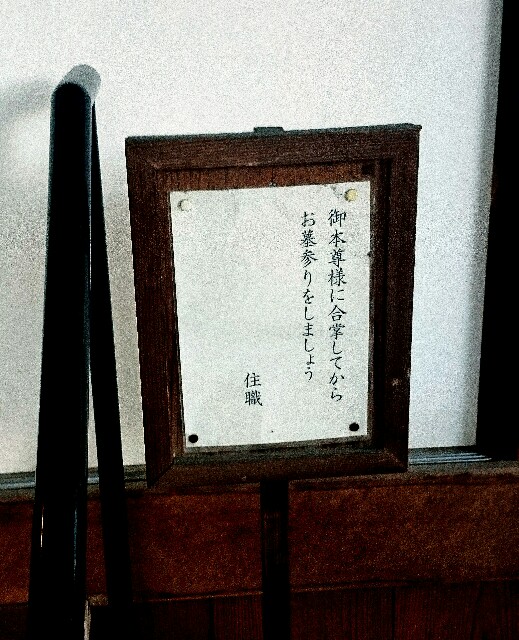 御本尊様に合掌してから
お墓参りをしましょう
住職